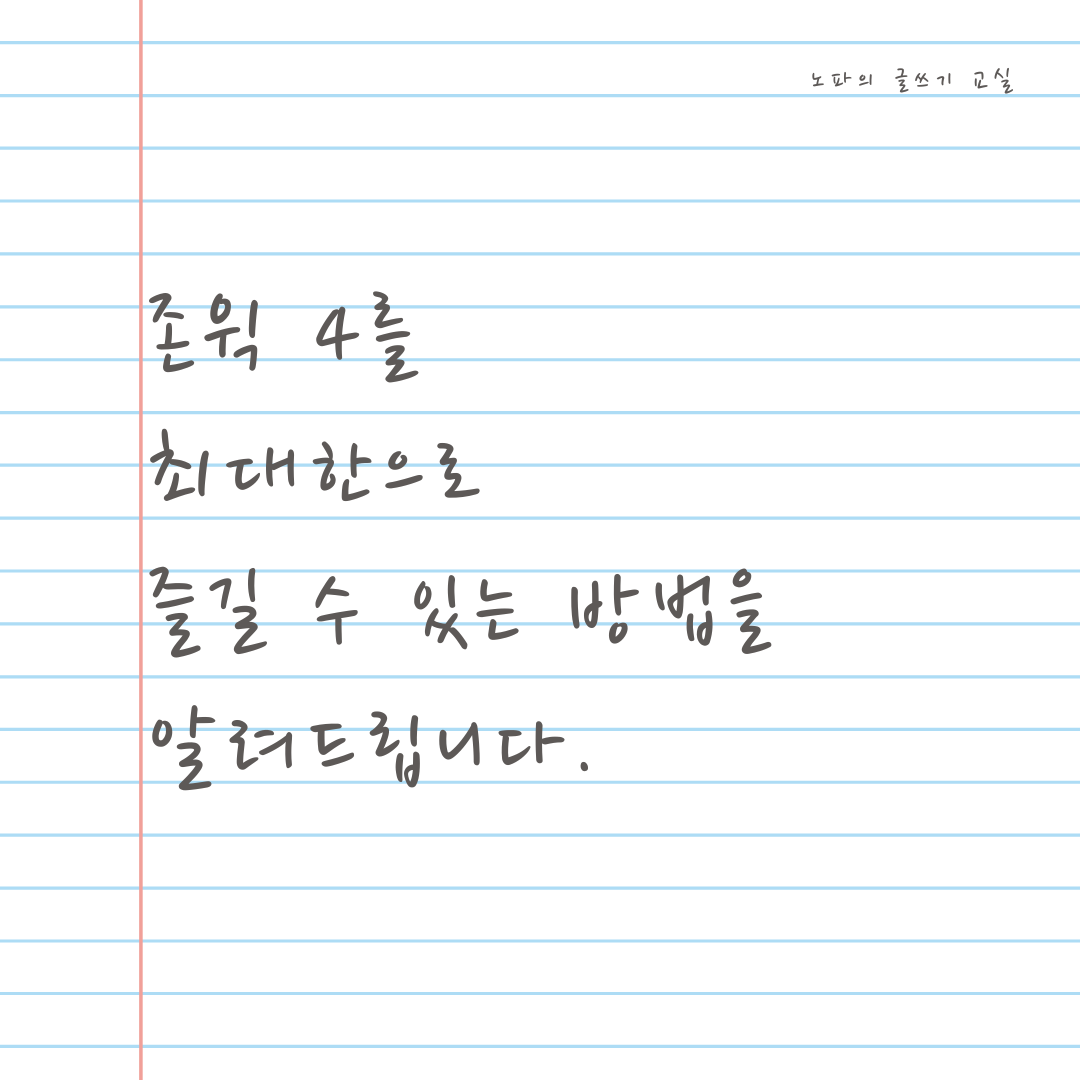 노파의 글쓰기 교실
존윅 4를
최대한으로
즐길 수 있는 방법을
알려드립니다.